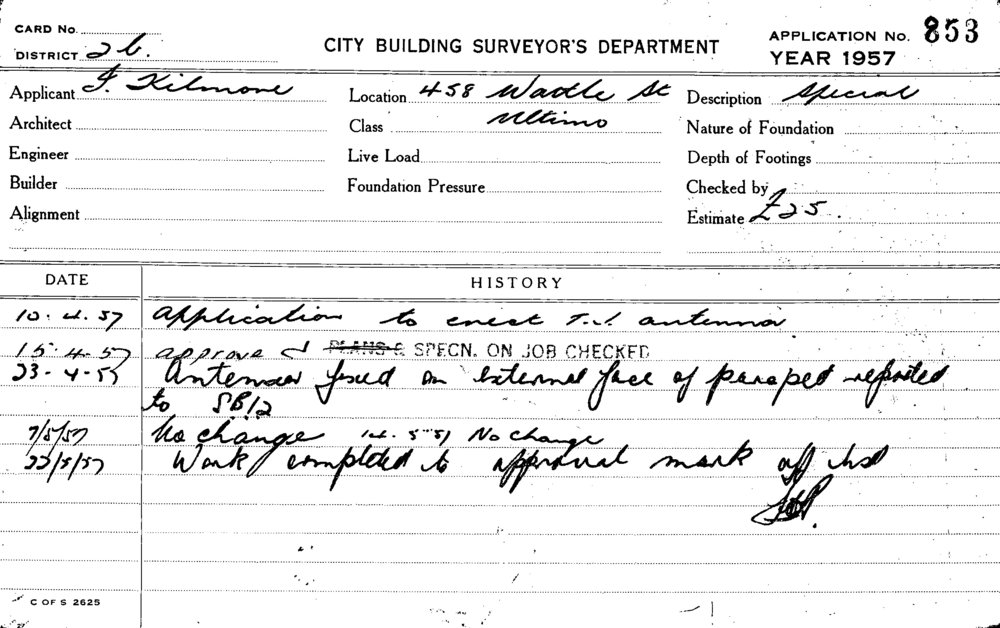 CARD No.
DISTRICT 2b.
CITY BUILDING SURVEYOR'S DEPARTMENT
APPLICATION No. 853
YEAR 1957
Applicant J. Kilmore
Location 458 Wattle St
Ultimo
Description Special
Architect
Class
Nature of Foundation
Engineer
Live Load
Depth of Footings
Builder
Foundation Pressure
Checked by
Alignment
Estimate £25.
DATE HISTORY
10.4.57 Application to erect T.V. antenna
15.4.57 approved PLANS & SPECN. ON JOB CHECKED
23-4-57 Antenna fixed on external face of parapet reported
to SB/2
7/5/57 No change 14.5.57 No change
22/5/57 Work completed to approval mark off
C OF S 2625